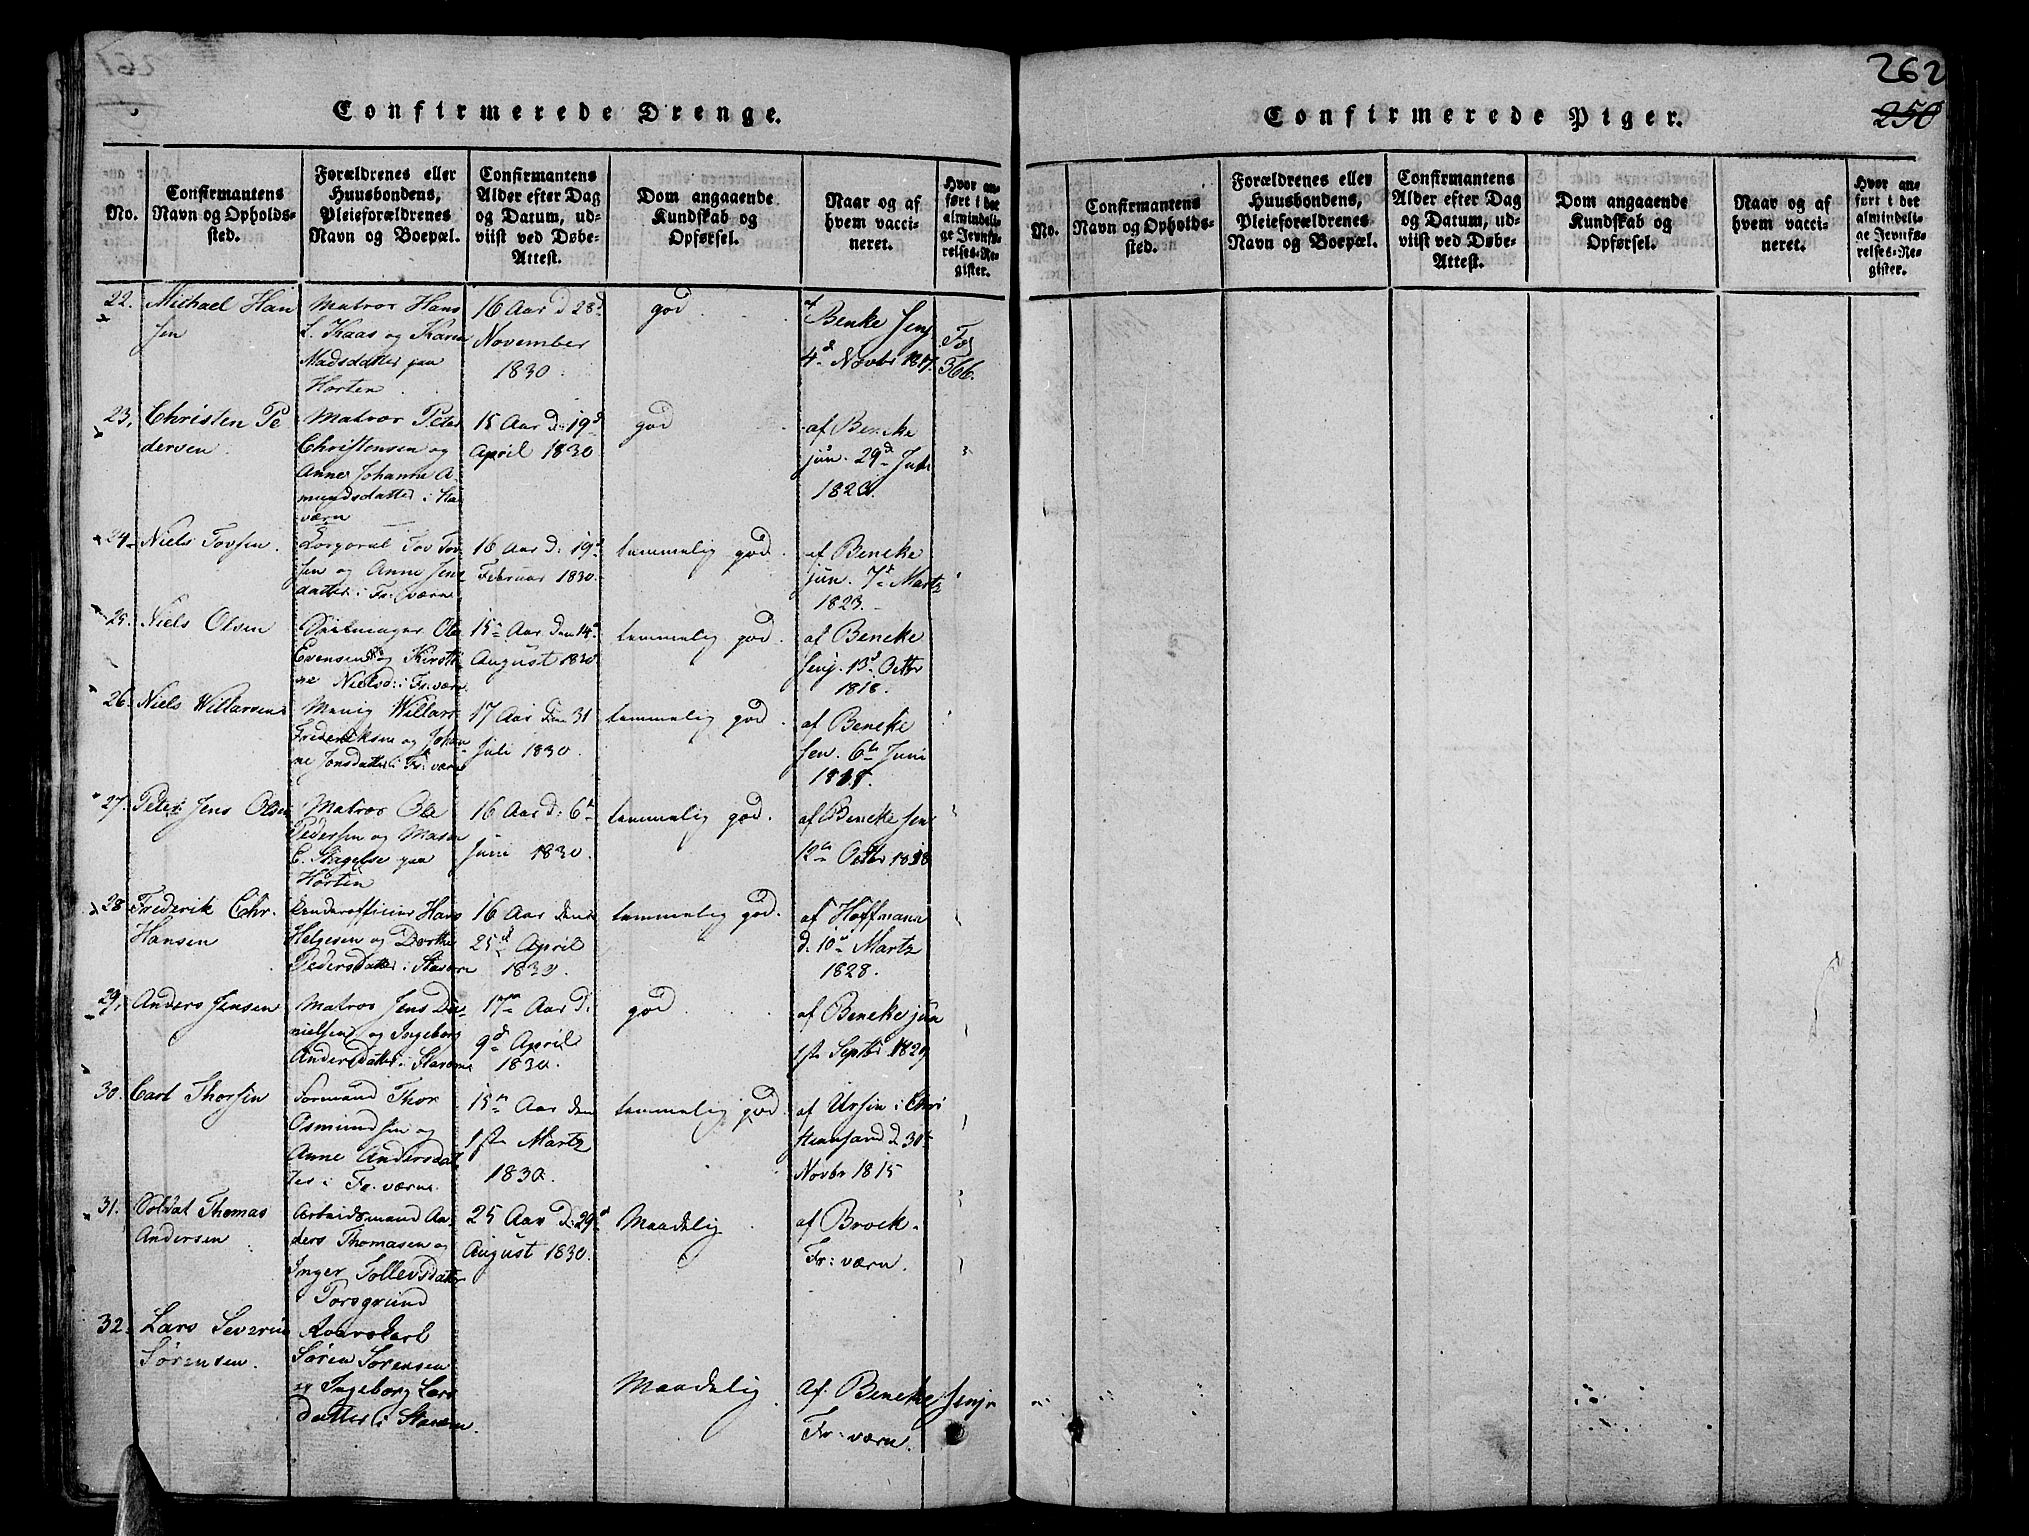 262
250
Confirmerede Drenge.
No.
Confirmantens
Navn og Opholds-
sted.
Forældrenes eller
Huusbondens,
Pleieforældrenes
Navn og Boepæl.
Confirmantens
Alder efter Dag
og Datum, ud-
viist ved Døbe-
Attest.
Dom angaaende
Kundskab og
Opførsel.
Naar og af
hvem vacci-
neret.
Hvor an-
ført i det
almindeli-
ge Jevnfø-
relses-Re-
gister.
22.
Michael Han
sen
Matros Hans
L. Kaas og Karen
Madsdatter paa
Horten
16 Aar d 28d
November
1830.
god
af
Benke Senj
4d Novbr 1817.
Fog
366.
23,
Christen Pe
dersen.
Matros Peter
Christensen og
Anne Johanne A-
mundsdatter i Sta
værn
15 Aar D: 19d
April 1830
god
af Beneke
jun. 29d
24
Niels Tovsen.
Corporal Tov Tov
sen og Anne Jens
datter i Fr: værn
16 Aar d: 19d
Februar 1830.
temmelig god.
af Beneke
jun. 7d Martz
1823.
25.
Niels Olsen
Ole
Evensen og Kirsti-
ne Nielsd: i Fr: værn
15n Aar den 14d
August 1830
temmelig god.
af Beneke
senj. 13d Octbr
1818.
26.
Niels Willarsen
Menig Willars
Frederiksen og Johan
ne Jonsdatter i Fr: værn
17 Aar Den 31
Juli 1830.
temmelig god.
af Beneke
sen. 6te Juni
27.
Peter Jens Olsen
Matros Ole
Pedersen og Maren
C. paa
Horten
16 Aar d: 6te
Juni 1830.
temmelig god.
af Beneke sen
12te Octbr
28
Frederik Chr.
Hansen
Underofficier Hans
Helgesen og Dorthe
Pedersdatter i Staværn
16 Aar den
25d April
1830.
temmelig god.
af Hoffmann
d: 10de Martz
1828.
29,
Anders Jensen
Matros Jens Da-
nielsen og Ingeborg
Andersdatter i Staværn
17n Aar d:
9d April
1830.
god
af Beneke jun
1ste Septbr 1829
30.
Carl Thorsen
Formand Thor
Osmundsen og
Anne Andersdat
ter i Fr: værn.
15n Aar den
1ste Martz
1830.
temmelig god.
af Ursin i Chri
stiansand d. 30te
Novbr 1815
31.
Soldat Thomas
Andersen
Arbeidsmand An-
ders Thomasen og
Inger Tollevsdatter
i Porsgrund
25 Aar D: 29d
August 1830.
Maadelig
af Brock-
Fr: værn.
32.
Lars Severin
Sørensen.
Søren Sørensen
og Ingeborg Lars
datter i Staværn.
Maadelig
Af. Beneke Senjr
Fr: værn.
Confirmerede Piger.
No.
Confirmantens
Navn og Opholds-
sted.
Forældrenes eller
Huusbondens,
Pleieforældrenes
Navn og Boepæl.
Confirmantens
Alder efter Dag
og Datum, ud-
viist ved Døbe-
Attest.
Dom angaaende
Kundskab og
Opførsel.
Naar og af
hvem vacci-
neret.
Hvor an-
ført i det
almindeli-
ge Jevnfø-
relses-Re-
gister.